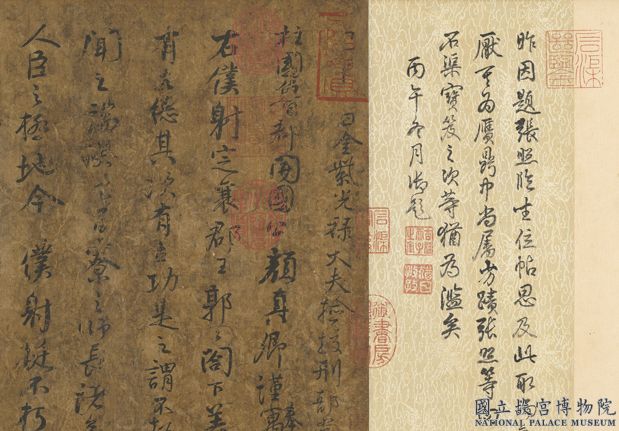 昨因題張照臨坐位帖思及此取
為贗鼎中尚屬 蹟張照等
石渠寶笈之次等猶為濫矣
丙午冬月御題
日金紫光祿大夫檢校刑部
柱國魯郡開國公顏真卿謹奉
右僕射定襄郡王郭公閤下蓋
有立德其次有立功是之謂不
聞之端揆者百寮之師長諸
人臣之極地今僕射挺不朽
國立故宮博物院
NATIONAL PALACE MUSEUM